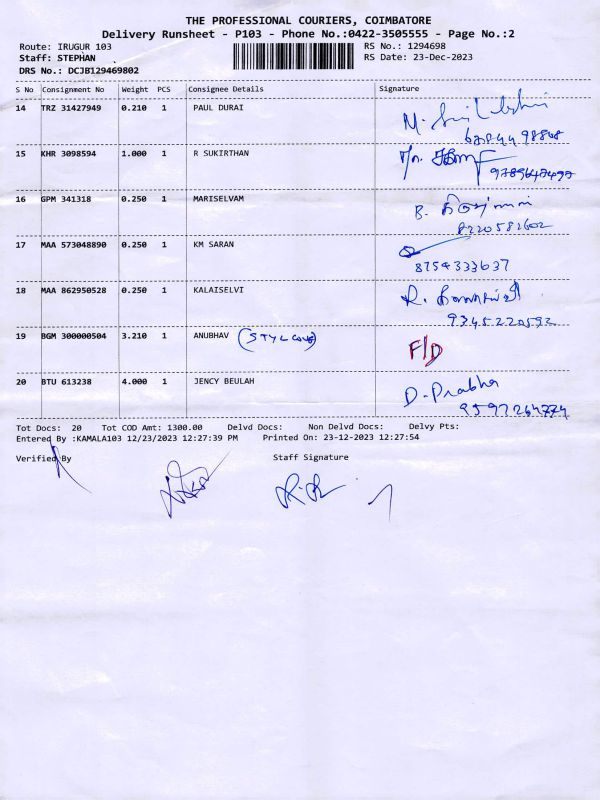 THE PROFESSIONAL COURIERS, COIMBATORE
Delivery Runsheet - P103 - Phone No.:0422-3505555 - Page No.:2
Route: IRUGUR 103 RS No.: 1294698
Staff: STEPHAN RS Date: 23-Dec-2023
DRS No.: DCJB129469802
S No Consignment No Weight PCS Consignee Details Signature
14 TRZ 31427949 0.210 1 PAUL DURAI M.
15 KHR 3098594 1.000 1 R SUKIRTHAN
16 GPM 341318 0.250 1 MARISELVAM B.
8220582602
17 MAA 573048890 0.250 1 KM SARAN
8754333637
18 MAA 862950528 0.250 1 KALAISELVI R.
9345220592
19 BGM 300000504 3.210 1 ANUBHAV F/D
20 BTU 613238 4.000 1 JENCY BEULAH D-Prabha
9597264774
Tot Docs: 20 Tot COD Amt: 1300.00 Delvd Docs: Non Delvd Docs: Delvy Pts:
Entered By :KAMALA103 12/23/2023 12:27:39 PM Printed On: 23-12-2023 12:27:54
Verified By Staff Signature